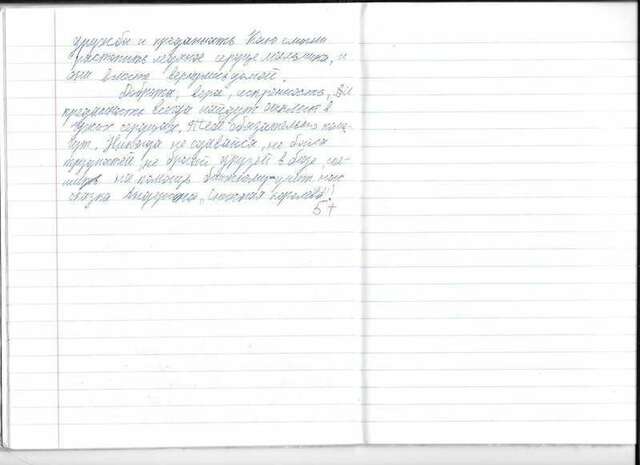 дружбы и преданность Каю смогли
растопить ледяное сердце мальчика, и
они вместе вернулись домой.
Доброта, вера, искренность,
преданность всегда найдут отклик в
чужих сердцах. Тебе обязательно помо-
гут. Никогда не сдавайся, не бойся
трудностей, не бросай друзей в беде,
на помощь ближнему - учит нас
сказка Андерсена „Снежная королева“!
5+